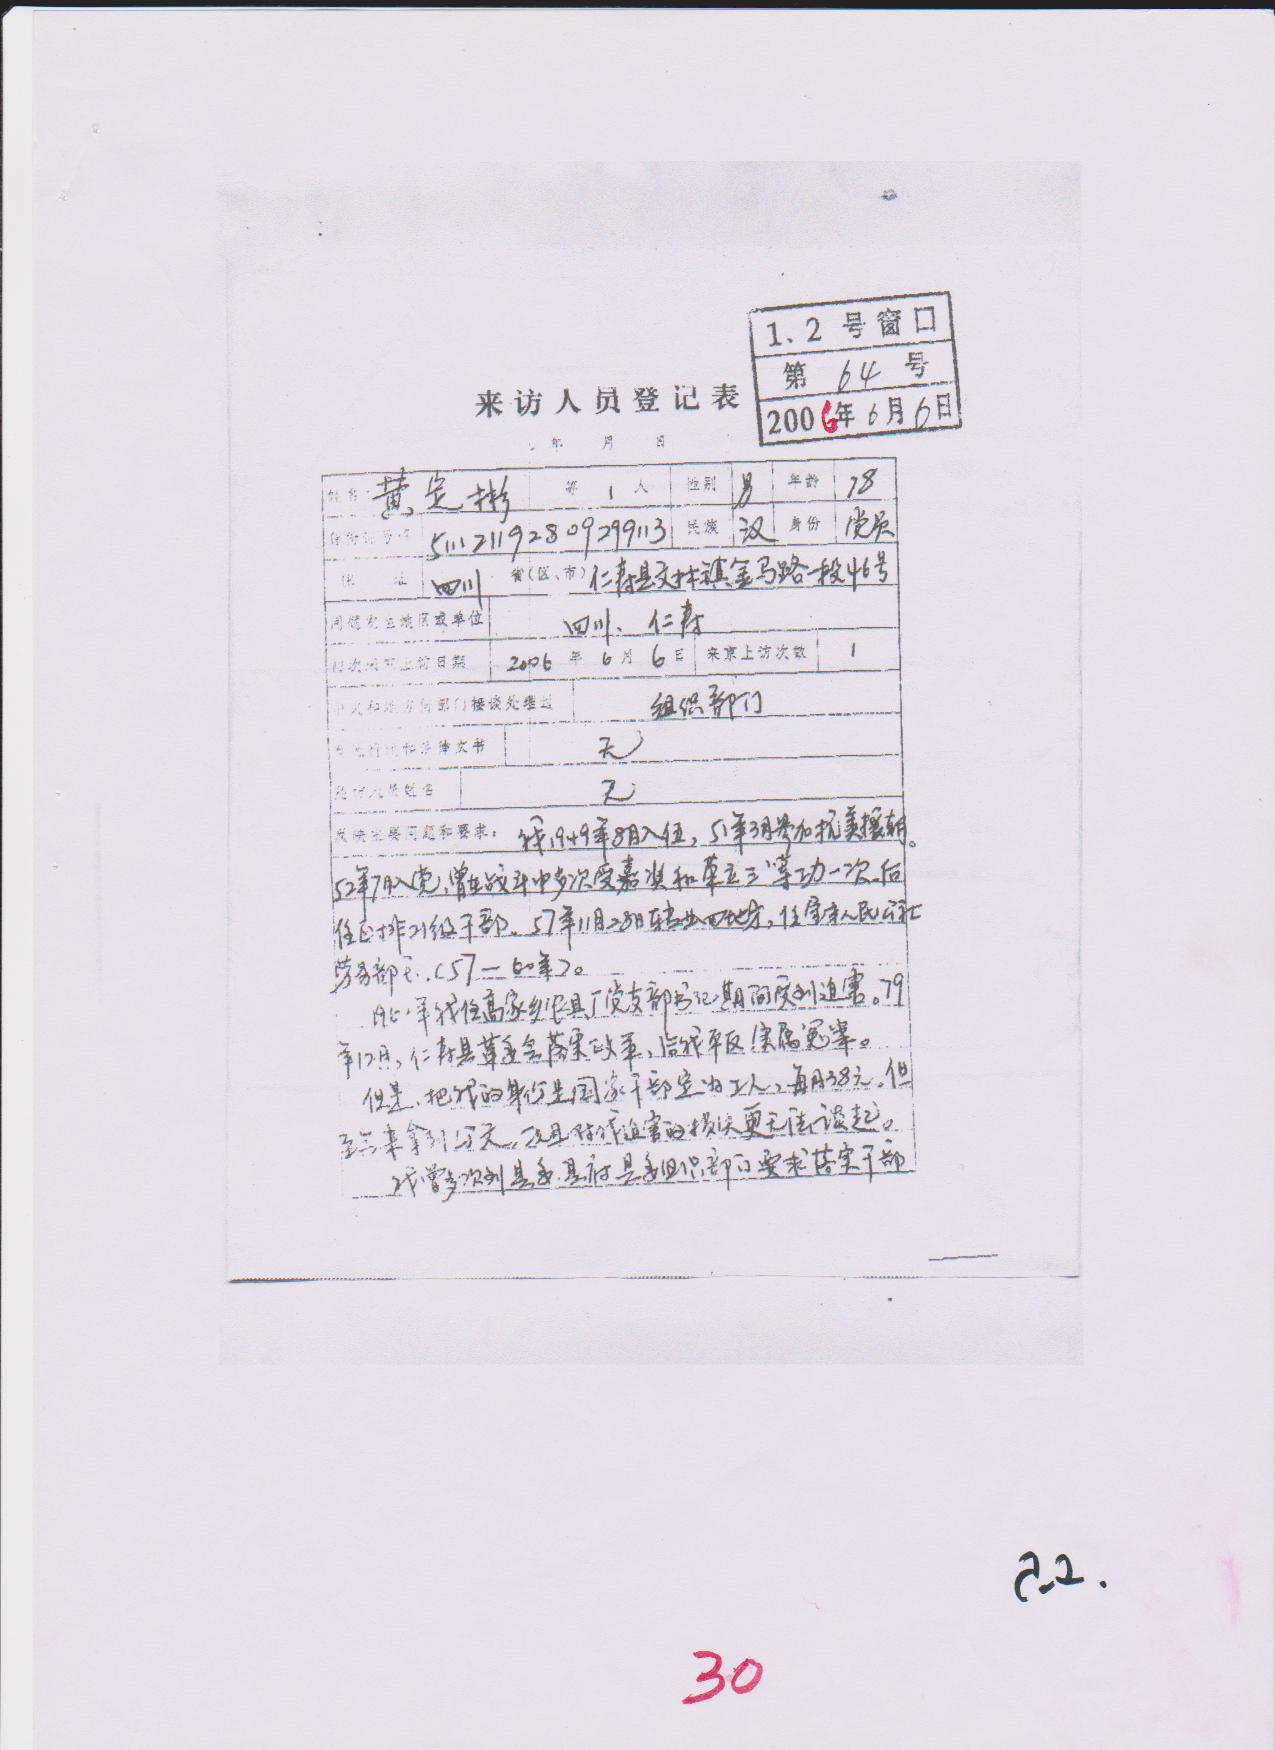 1、2 号窗口
第 64 号
2006年6月6日
来访人员登记表
年 月 日
姓名 黄定彬 等 1 人 性别 男 年龄 78
身份证号码 511121192809299113 民族 汉 身份 党员
住址 四川 省(区、市) 仁寿县文林镇金马路一段46号
问题发生地区或单位 四川、仁寿
首次来京上访日期 2006年6月6日 来京上访次数 1
中央和地方何部门接谈处理过 组织部门
无
无
反映主要问题和要求: 我1949年8月入伍,51年3月参加抗美援朝。
52年7月入党,曾在战斗中多次受嘉奖和荣立三等功一次,后
任正排21级干部。57年11月28日转业回地方,任宝才人民公社
劳务部长(57—60年)。
年我任高家乡农具厂党支部书记期间受到迫害。79
年12月,仁寿县革委会落实政策,给我平反实属冤案。
但是,把我的身份是国家干部定为工人,每月38元,但
至今未拿到分元,而且对我迫害的损失更无法谈起。
我曾多次到县委、县府、县委组织部门要求落实干部
2-2.
30